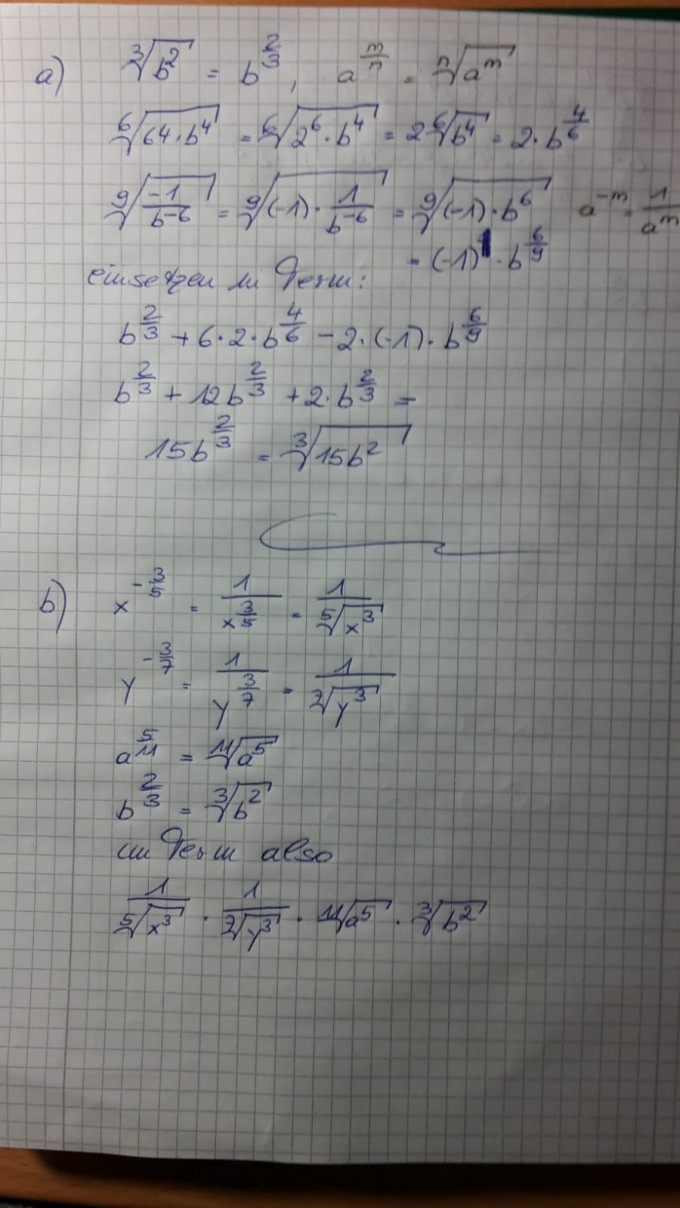 a) ∛(b²) = b^(2/3), a^(m/n) = ⁿ√(a^m)
⁶√(64·b⁴) = ⁶√(2⁶·b⁴) = 2 ⁶√(b⁴) = 2·b^(4/6)
⁹√(-1/b^(-6)) = ⁹√((-1)·1/b^(-6)) = ⁹√((-1)·b⁶) a^(-m) = 1/a^m
= (-1)·b^(6/9)
einsetzen in Term:
b^(2/3) + 6·2·b^(4/6) - 2·(-1)·b^(6/9)
b^(2/3) + 12b^(2/3) + 2·b^(2/3) =
15b^(2/3) = ∛(15b²)
b) x^(-3/5) = 1/x^(3/5) = 1/⁵√(x³)
y^(-3/7) = 1/y^(3/7) = 1/⁷√(y³)
a^(5/11) = ¹¹√(a⁵)
b^(2/3) = ∛(b²)
im Term also
1/⁵√(x³) · 1/⁷√(y³) · ¹¹√(a⁵) · ∛(b²)